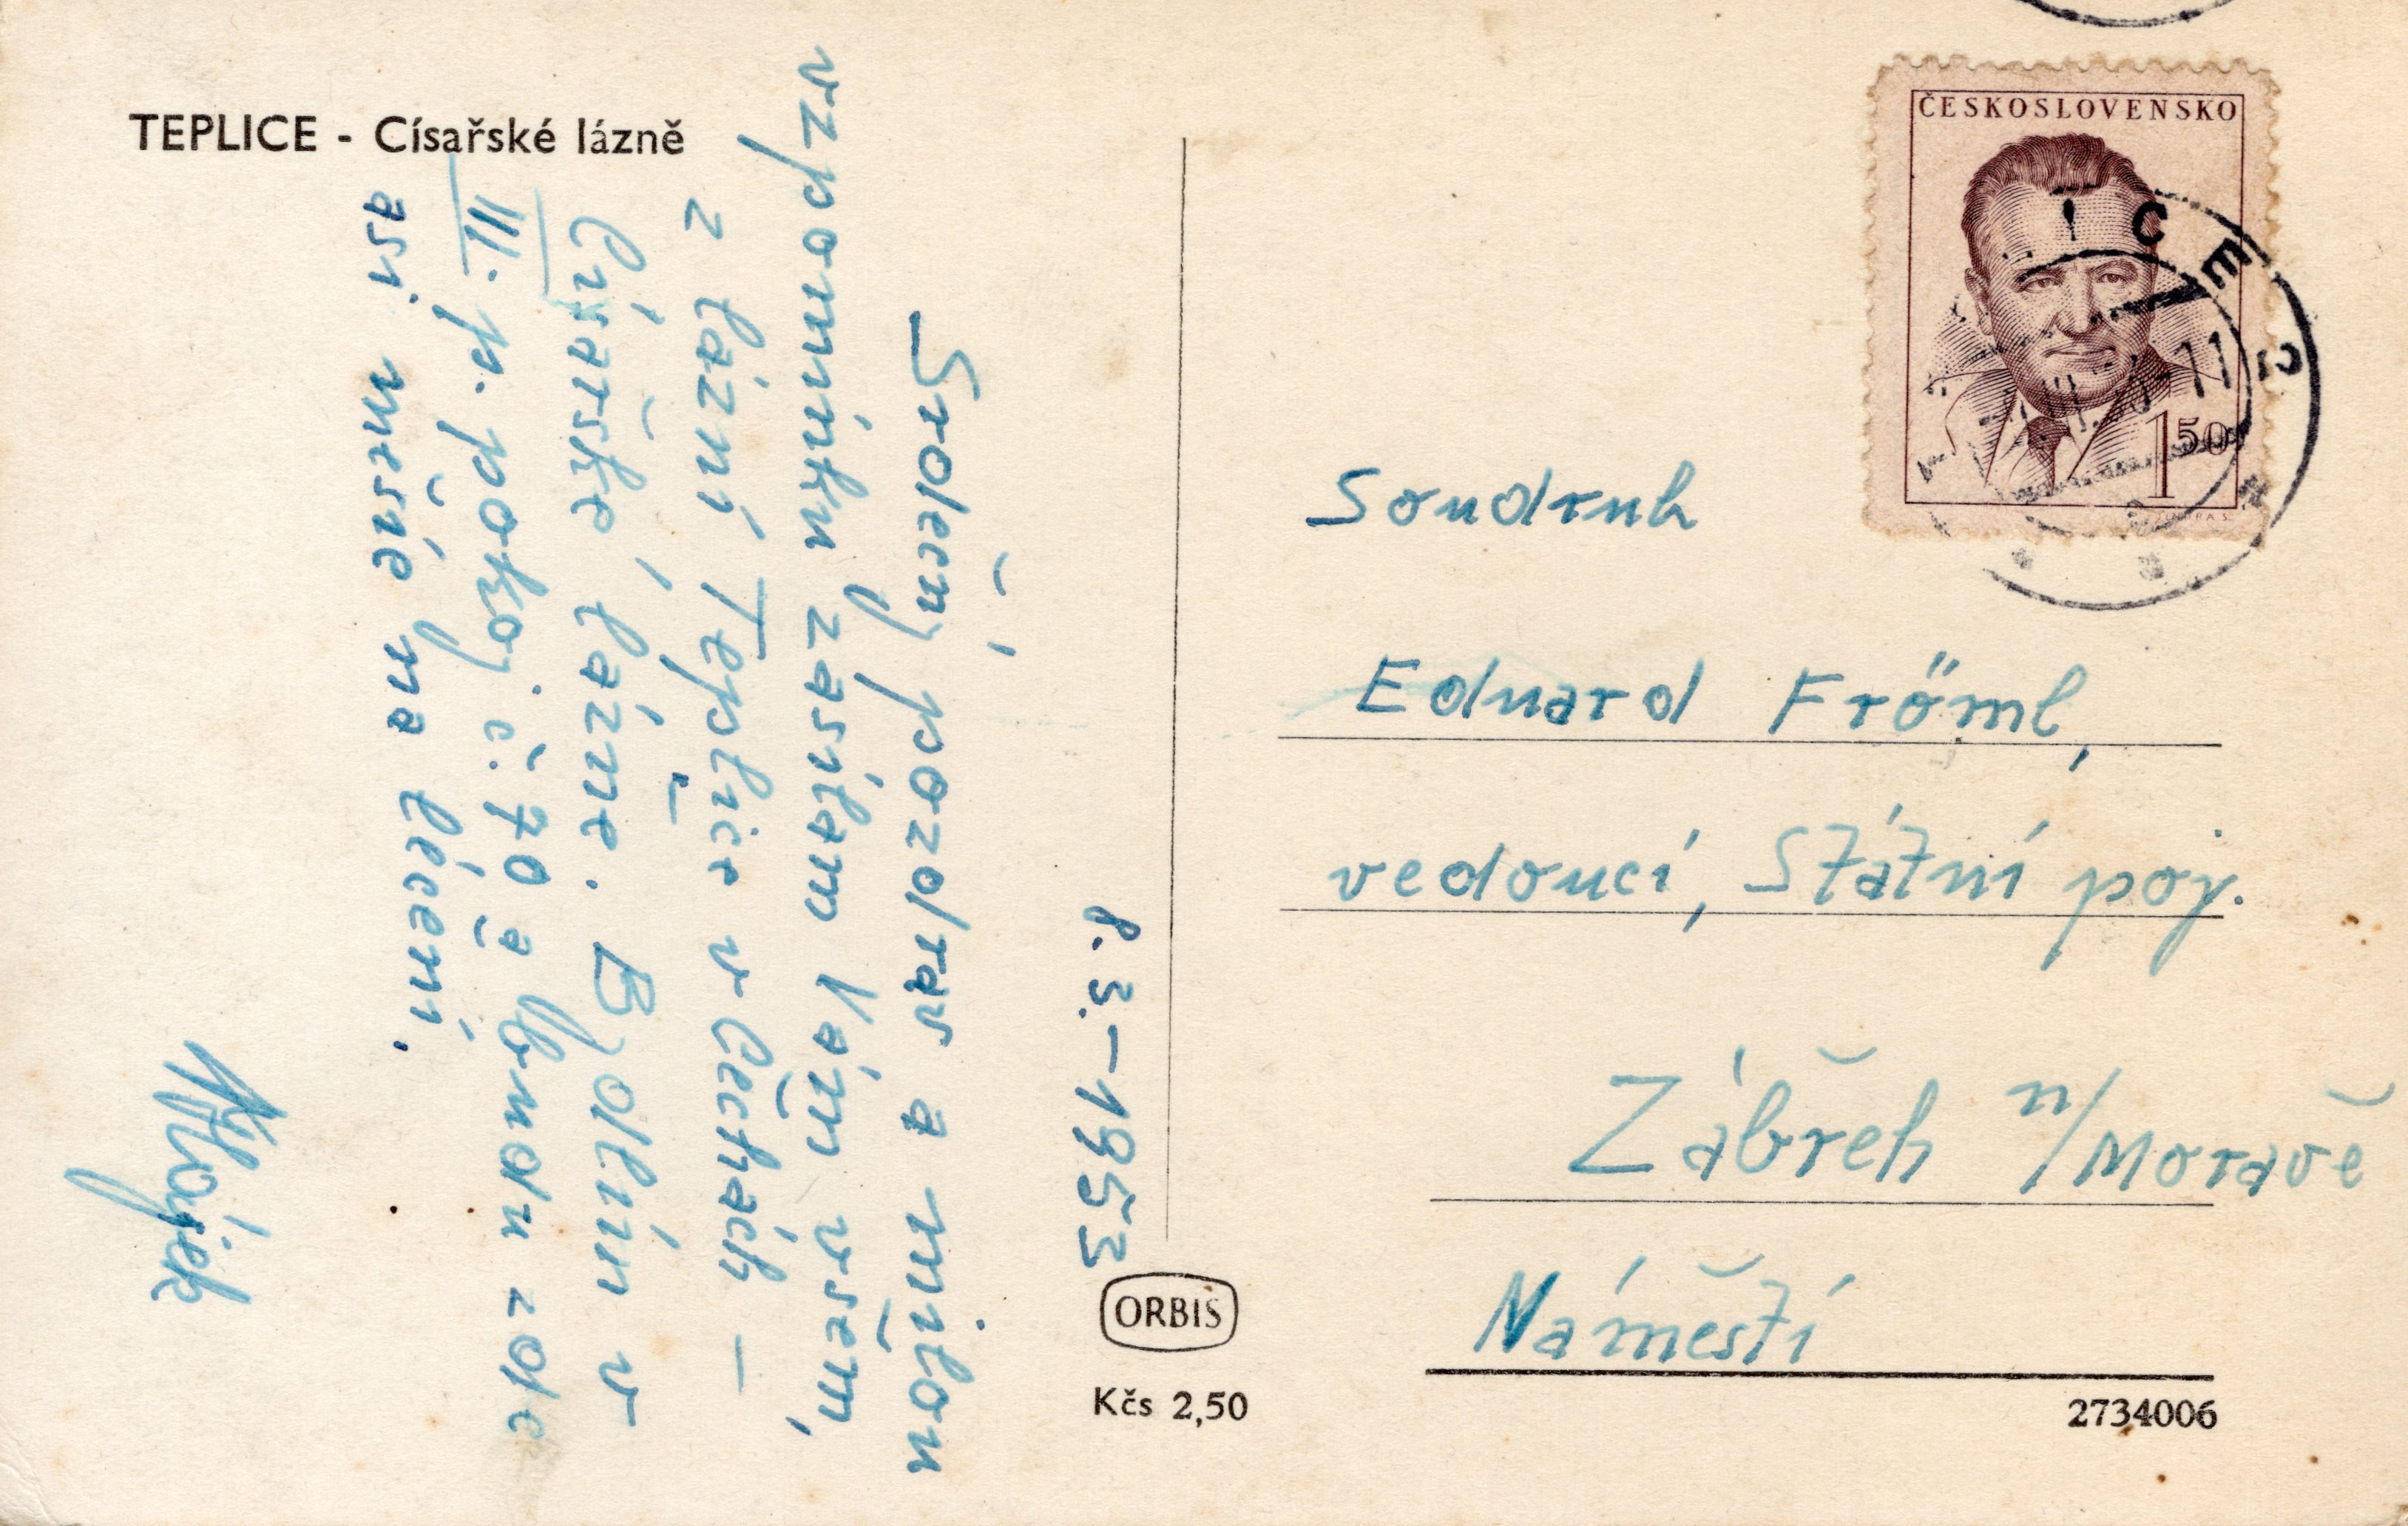 TEPLICE - Císařské lázně
8. 3. - 1953
Srdečný pozdrav a milou
vzpomínku zasílám Vám všem,
z lázní Teplice v Čechách -
Císařské lázně. Bydlím v
III. p. pokoj č. 70 a budu zde
asi měsíc na léčení.
Hájek
ORBIS
Kčs 2,50
ČESKOSLOVENSKO
1 50
ICE 2
11
Soudruh
Eduard Fröml,
vedoucí, Státní poj.
Zábřeh n/Moravě
Náměstí
2734006